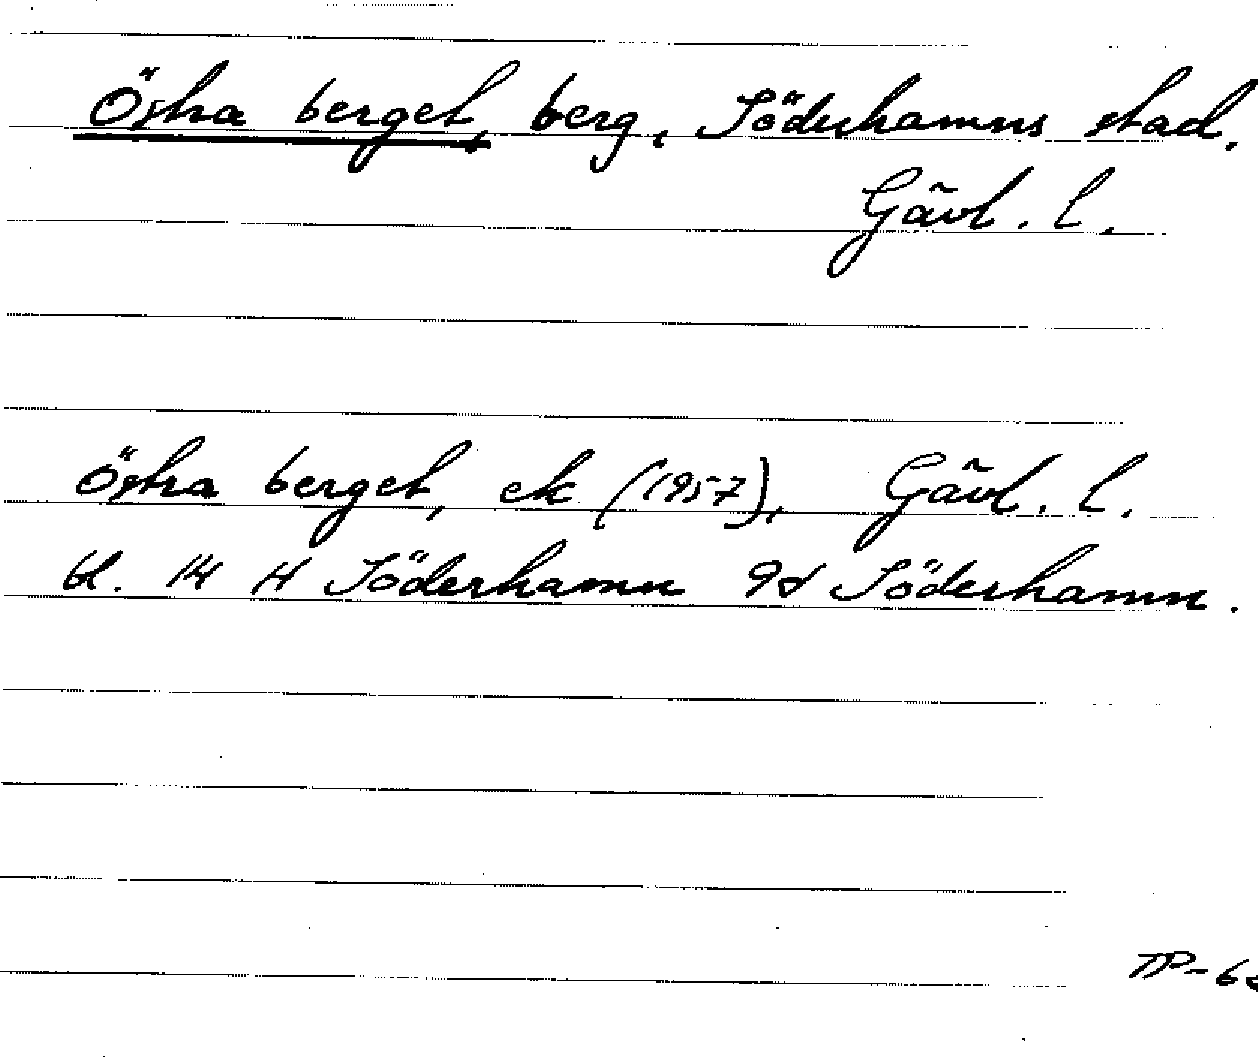 Östra berget, berg, Söderhamns stad.
Gävl. l.
Östra berget, ek (1957), Gävl. l.
bl. 14 H Söderhamn 9d Söderhamn.